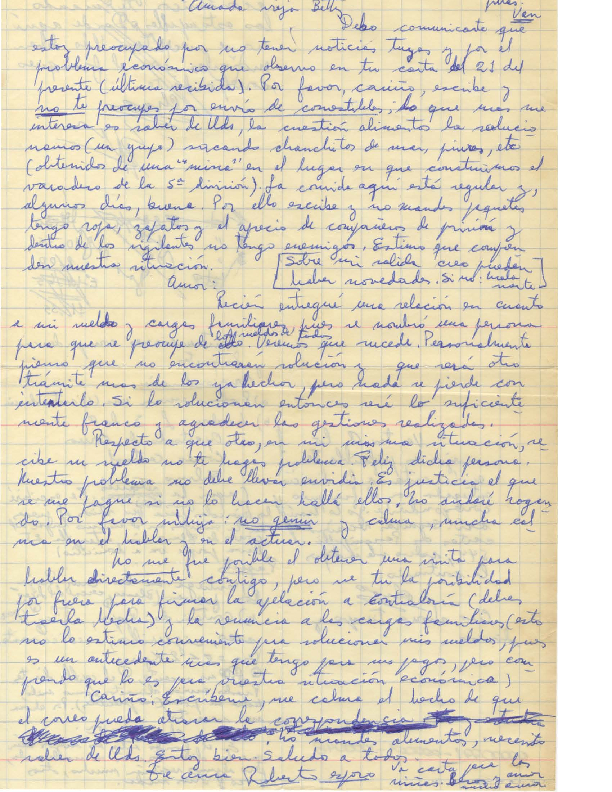 Amada vieja Betty
pues.
Ven
Debo comunicarte que
estoy preocupado por no tener noticias tuyas y por el
problema económico que observo en tu carta del 21 del
presente (última recibida). Por favor, cariño, escribe y
no te preocupes por envío de comestibles, lo que mas me
interesa es saber de Uds, la cuestión alimentos la solucio
namos (un grupo) sacando chanchitos de mar, piures, etc
(obtenidos de una "mina" en el lugar en que construimos el
varadero de la 5ª división). La comida aquí está regular y,
algunos días, buena. Por ello escribe y no mandes paquetes
tengo ropa, zapatos y el aprecio de compañeros de prisión y
dentro de los vigilantes no tengo enemigos. Estimo que compren
den nuestra situación. [Sobre mi salida creo pueden
haber novedades. Si no: mala suerte]
Amor:
Recién entregué una relación en cuanto
a mi sueldo y cargas familiares, pues se nombró una persona
para que se preocupe de los sueldos de todos. Veremos que sucede. Personalmente
pienso que no encontrarán solución y que será otro
trámite mas de los ya hechos, pero nada se pierde con
intentarlo. Si lo solucionan entonces seré lo suficiente-
mente franco y agradecer las gestiones realizadas.
Respecto a que otro, en mi misma situación, re-
cibe su sueldo no te hagas problema. Feliz dicha persona.
Nuestro problema no debe llevar envidia. Es justicia el que
se me pague si no lo hacen hallá ellos. No andaré rogan-
do. Por favor mihija: no gemir y calma, mucha cal-
ma en el hablar y en el actuar.
No me fue posible el obtener una visita para
hablar directamente contigo, pero ve tu la posibilidad
por fuera para firmar la apelación a Contraloría (debes
traerla hecha) y la renuncia a las cargas familiares (esto
no lo estimo conveniente para solucionar mis sueldos, pues
es un antecedente mas que tengo para sus pagos, pero com-
prendo que lo es para vuestra situación económica)
Cariño. Escríbeme, me calma el hecho de que
el correo pueda atrasar la correspondencia
no mandes alimentos, necesito
saber de Uds. Estoy bien. Saludo a todos.
Te ama Roberto esposo
Va carta para los
niños. Besos y amor